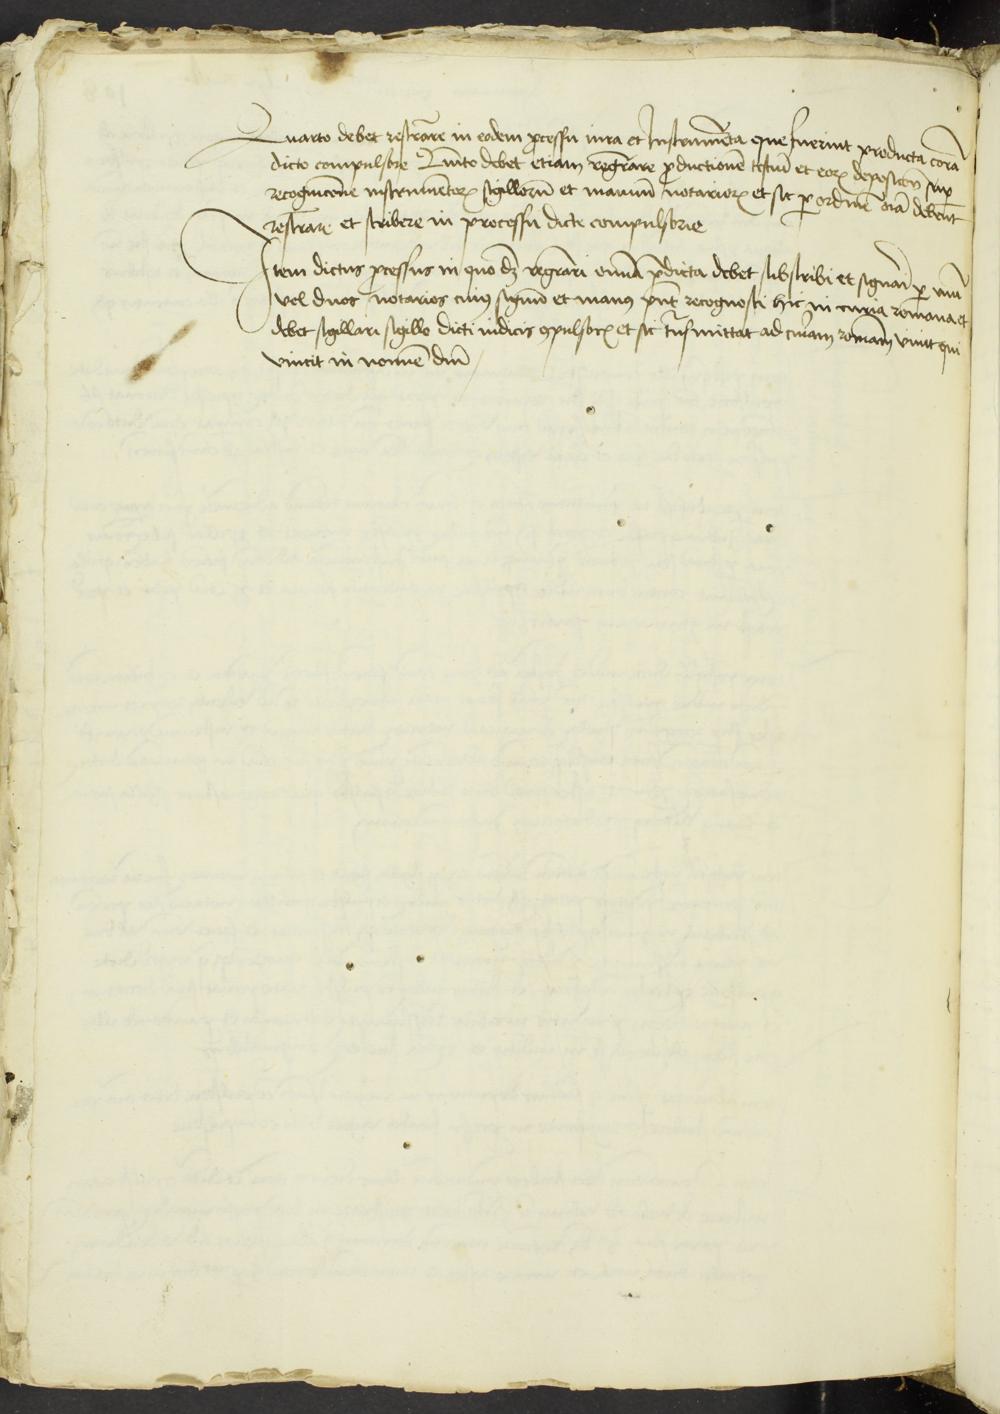 Quarto debet restrare in eodem processu iura et Instrumēta que fuerint producta corā
dicto compulsore Quīto debet etiam regrare productionē testiū et eorꝝ depositionē
recognicionē instrumentorꝝ sigillorū et manuū notariorꝝ et sic ꝑ ordinē oīa debent
restrare et scribere in processu dicte compulsorie
Item dictus ꝓcessus in quo dꝫ regrari omīa p̄dicta debet subscribi et signari ꝑ unū
vel duos notarios cuiꝰ signū et manꝰ pn̄t recognosci hic in curia romana et
debet sigillari sigillo dicti iudicis ꝯpulsorꝝ et sic trāsmittat ad curiam romanā vivit qui
vincit in nomīe dnī